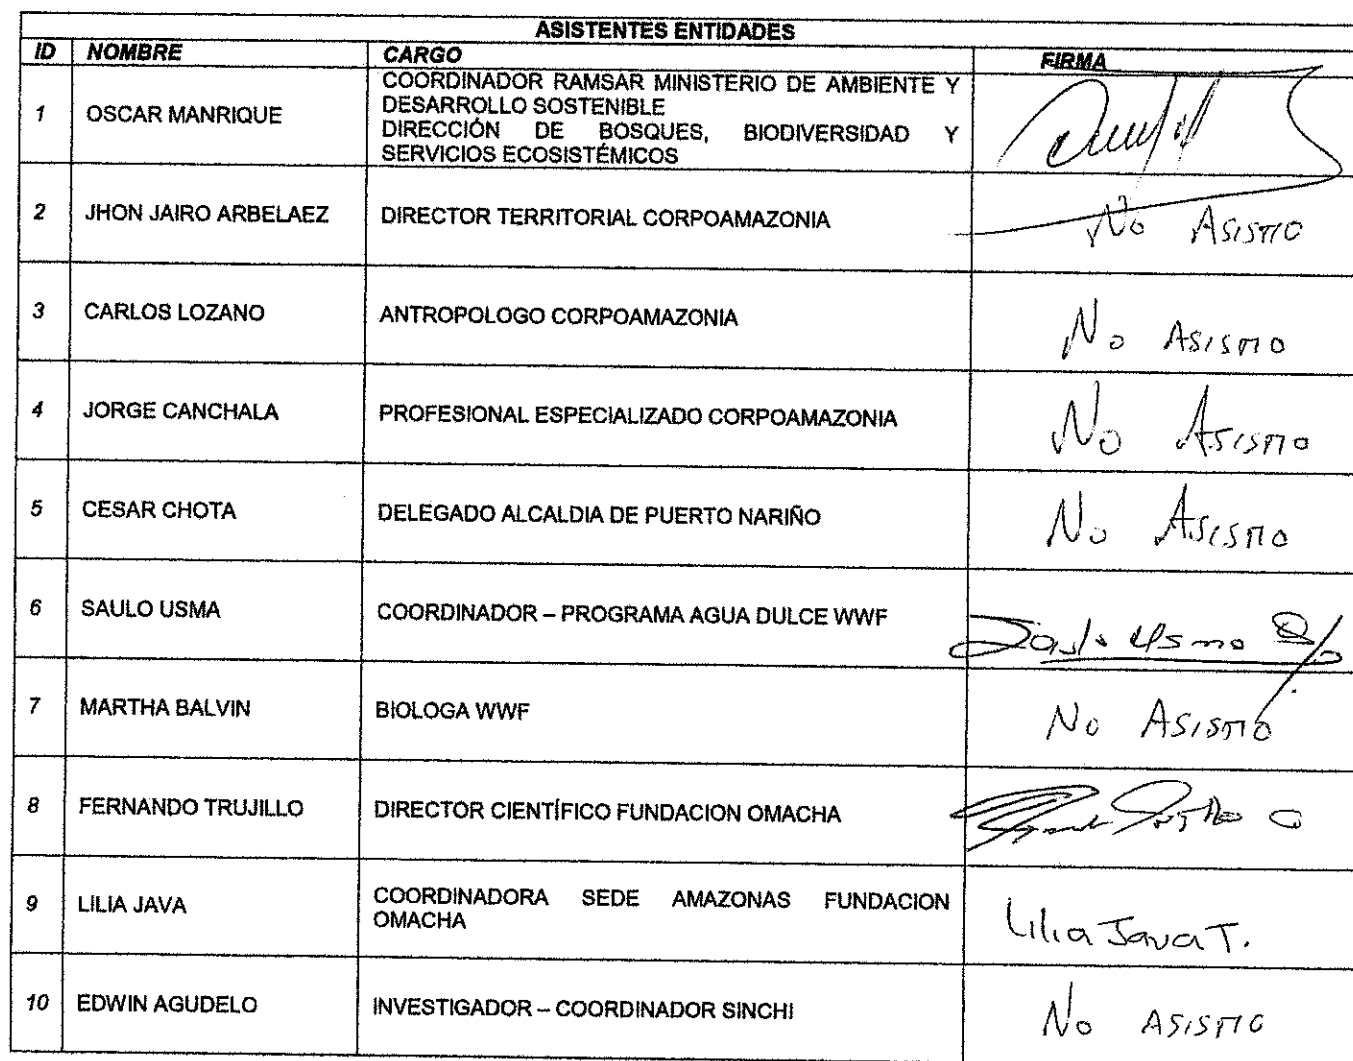 ASISTENTES ENTIDADES
ID NOMBRE CARGO FIRMA
1 OSCAR MANRIQUE COORDINADOR RAMSAR MINISTERIO DE AMBIENTE Y
DESARROLLO SOSTENIBLE
DIRECCIÓN DE BOSQUES, BIODIVERSIDAD Y
SERVICIOS ECOSISTÉMICOS
2 JHON JAIRO ARBELAEZ DIRECTOR TERRITORIAL CORPOAMAZONIA No ASISTIO
3 CARLOS LOZANO ANTROPOLOGO CORPOAMAZONIA No ASISTIO
4 JORGE CANCHALA PROFESIONAL ESPECIALIZADO CORPOAMAZONIA No ASISTIO
5 CESAR CHOTA DELEGADO ALCALDIA DE PUERTO NARIÑO No ASISTIO
6 SAULO USMA COORDINADOR – PROGRAMA AGUA DULCE WWF Saulo Usma
7 MARTHA BALVIN BIOLOGA WWF No ASISTIO
8 FERNANDO TRUJILLO DIRECTOR CIENTÍFICO FUNDACION OMACHA
9 LILIA JAVA COORDINADORA SEDE AMAZONAS FUNDACION
OMACHA Lilia Java T.
10 EDWIN AGUDELO INVESTIGADOR – COORDINADOR SINCHI No ASISTIO